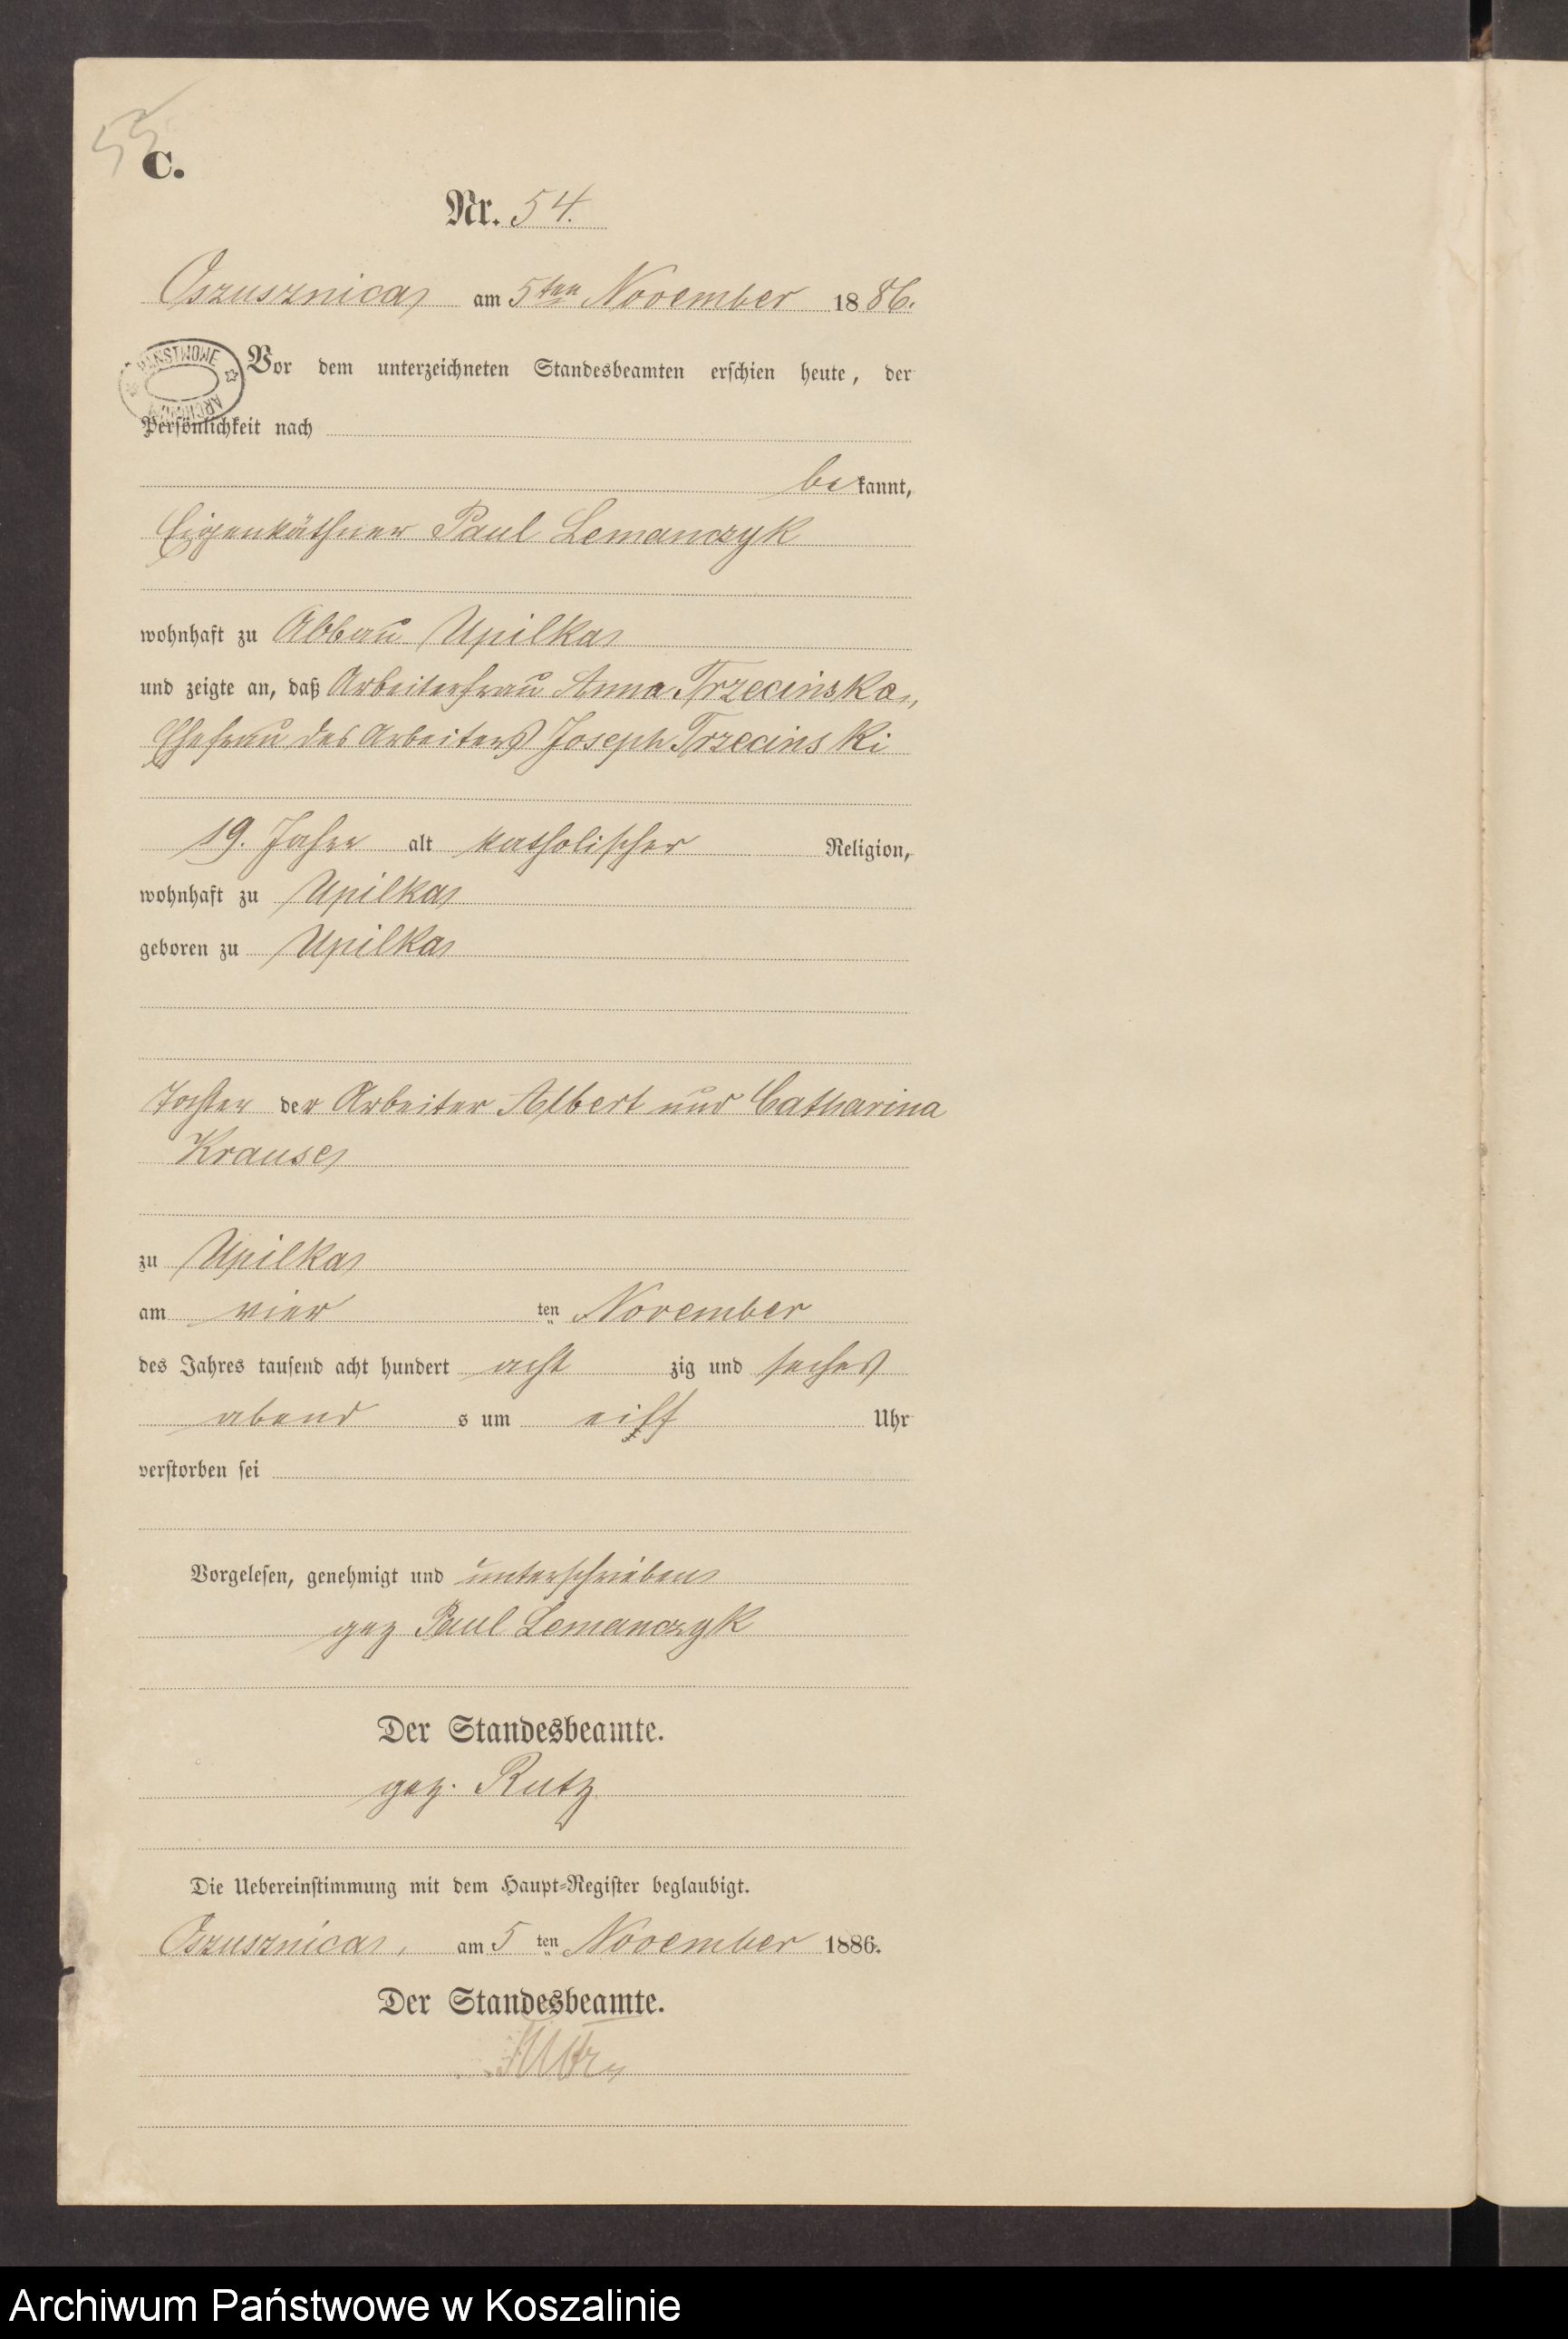 55
C.
Nr. 54.
Oszusznica am 5ten November 1886.
PAŃSTWOWE ARCHIWUM
Vor dem unterzeichneten Standesbeamten erschien heute, der
Persönlichkeit nach
bekannt,
Eigenkäthner Paul Lemanczyk
wohnhaft zu Abbau Upilka
und zeigte an, daß Arbeiterfrau Anna Trzecinska,
Ehefrau des Arbeiters Joseph Trzecinski
19. Jahre alt katholischer Religion,
wohnhaft zu Upilka
geboren zu Upilka
Tochter der Arbeiter Albert und Catharina
Krause
zu Upilka
am vier ten November
des Jahres tausend acht hundert acht zig und sechs
abend s um elf Uhr
verstorben sei
Vorgelesen, genehmigt und unterschrieben
gez Paul Lemanczyk
Der Standesbeamte.
gez. Rutz
Die Uebereinstimmung mit dem Haupt-Register beglaubigt.
Oszusznica, am 5 ten November 1886.
Der Standesbeamte.
Rutz
Archiwum Państwowe w Koszalinie